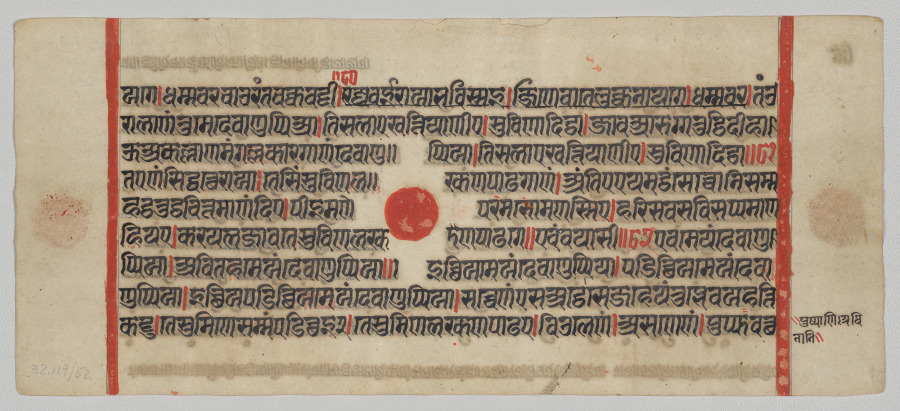 न्नागा।धम्मवरचाउरंतचक्कवट्टी।रज्जवईरायाभविस्सइ।जिणेवातेलुक्कनायगे।धम्मवर॰।तंउ
रालाणंतुमेदेवाणुप्पिआ।तिसलाएखत्तियाणीए।सुविणादिट्ठा।जावआरुग्गतुट्ठिदीहा
ऊअकल्लाणमंगल्लकारगाणंदेवाणु॥ प्पिआ।तिसलाएखत्तियाणीए।सुविणादिट्ठा॥८१
तएणंसिद्धत्थेराया।तेसिंसुविणल॥ रकणपाढगाणं।अंतिएएयमट्ठंसोच्चानिसम्म
हट्ठतुट्ठचित्तमाणंदिए।पीइमणे परमसोमणस्सिए।हरिसवसविसप्पमाण
हियए।करयलजावतेसुविणलरक णपाढगे॥एवंवयासी॥८२एवमेयंदेवाणु
प्पिआ।अवितहमेअंदेवाणुप्पिआ॥ इच्छिअमेअंदेवाणुप्पिया।पडिच्छिअमेअंदेवा
णुप्पिआ।इच्छिअपडिच्छिअमेअंदेवाणुप्पिआ।सच्चेणंएसअट्ठेसेजहेयंतुब्भेवयहत्ति
कट्टु।तेसुमिणेसम्मंपडिच्छइ२।तेसुमिणलरकणपाढए।विउलेणं।असणेणं।पुप्फवत्थ